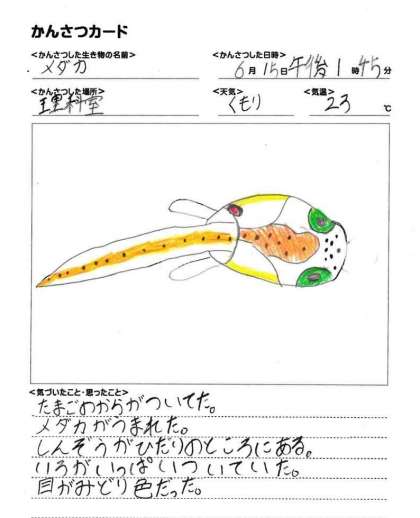 かんさつカード
<かんさつした生き物の名前>
メダカ
<かんさつした日時>
6月15日午後1時45分
<かんさつした場所>
理科室
<天気>
くもり
<気温>
23℃
<気づいたこと・思ったこと>
たまごのからがついてた。
メダカがうまれた。
しんぞうがひだりのところにある。
いろがいっぱいついていた。
目がみどり色だった。